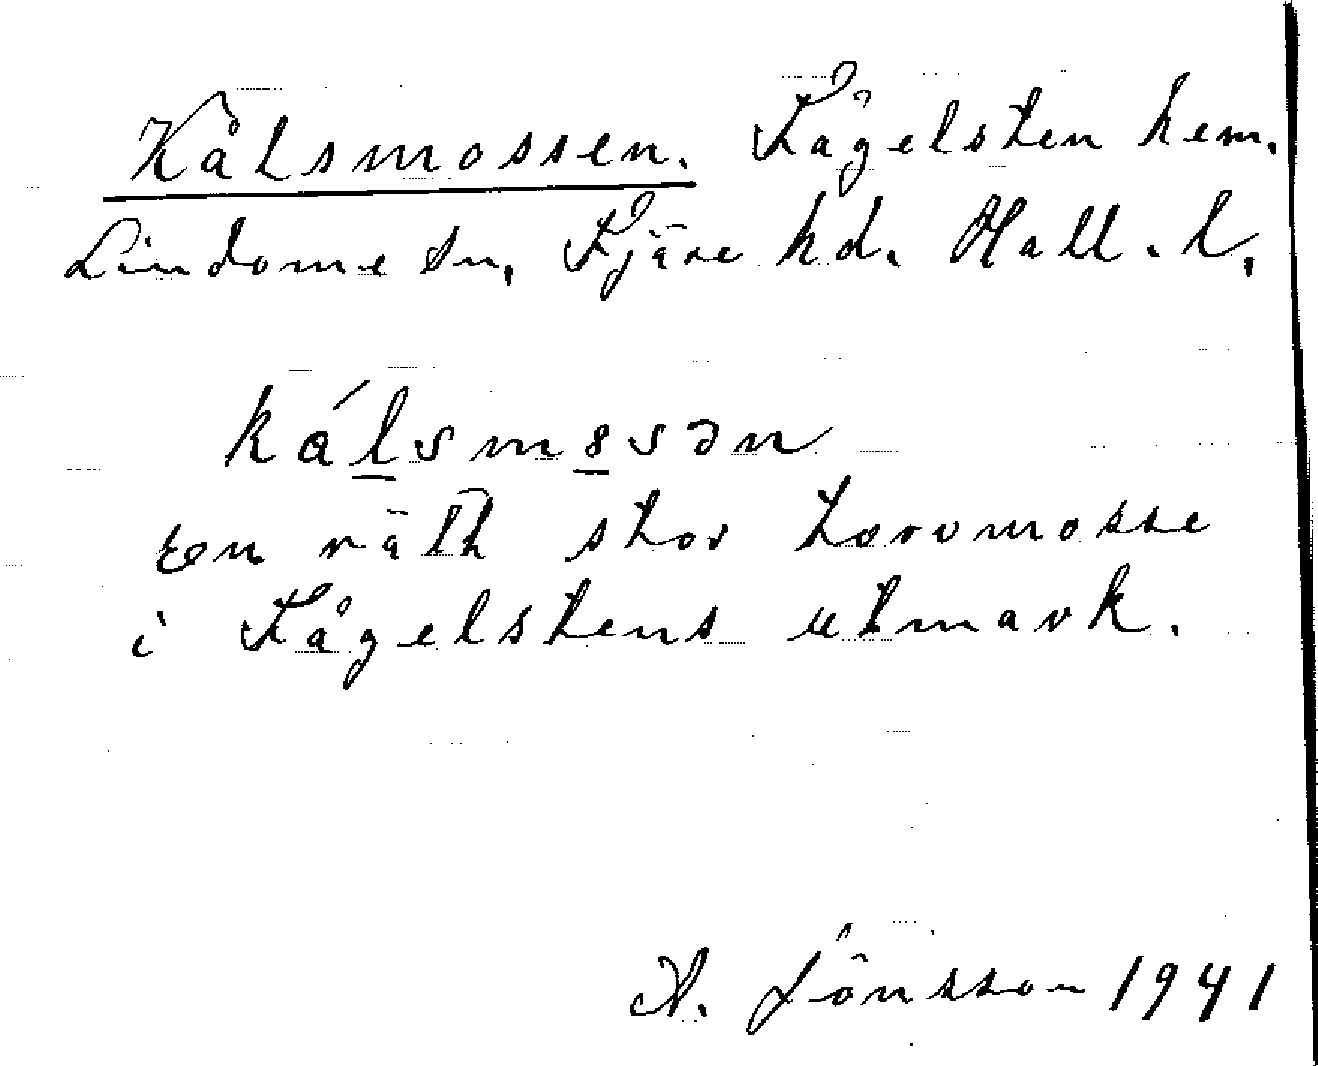 Kålsmossen. Fågelsten hem.
Lindome sn, Fjäre hd. Hall. l,
kálsmosən
en rätt stor torvmosse
i Fågelstens utmark.
A. Jönsson 1941